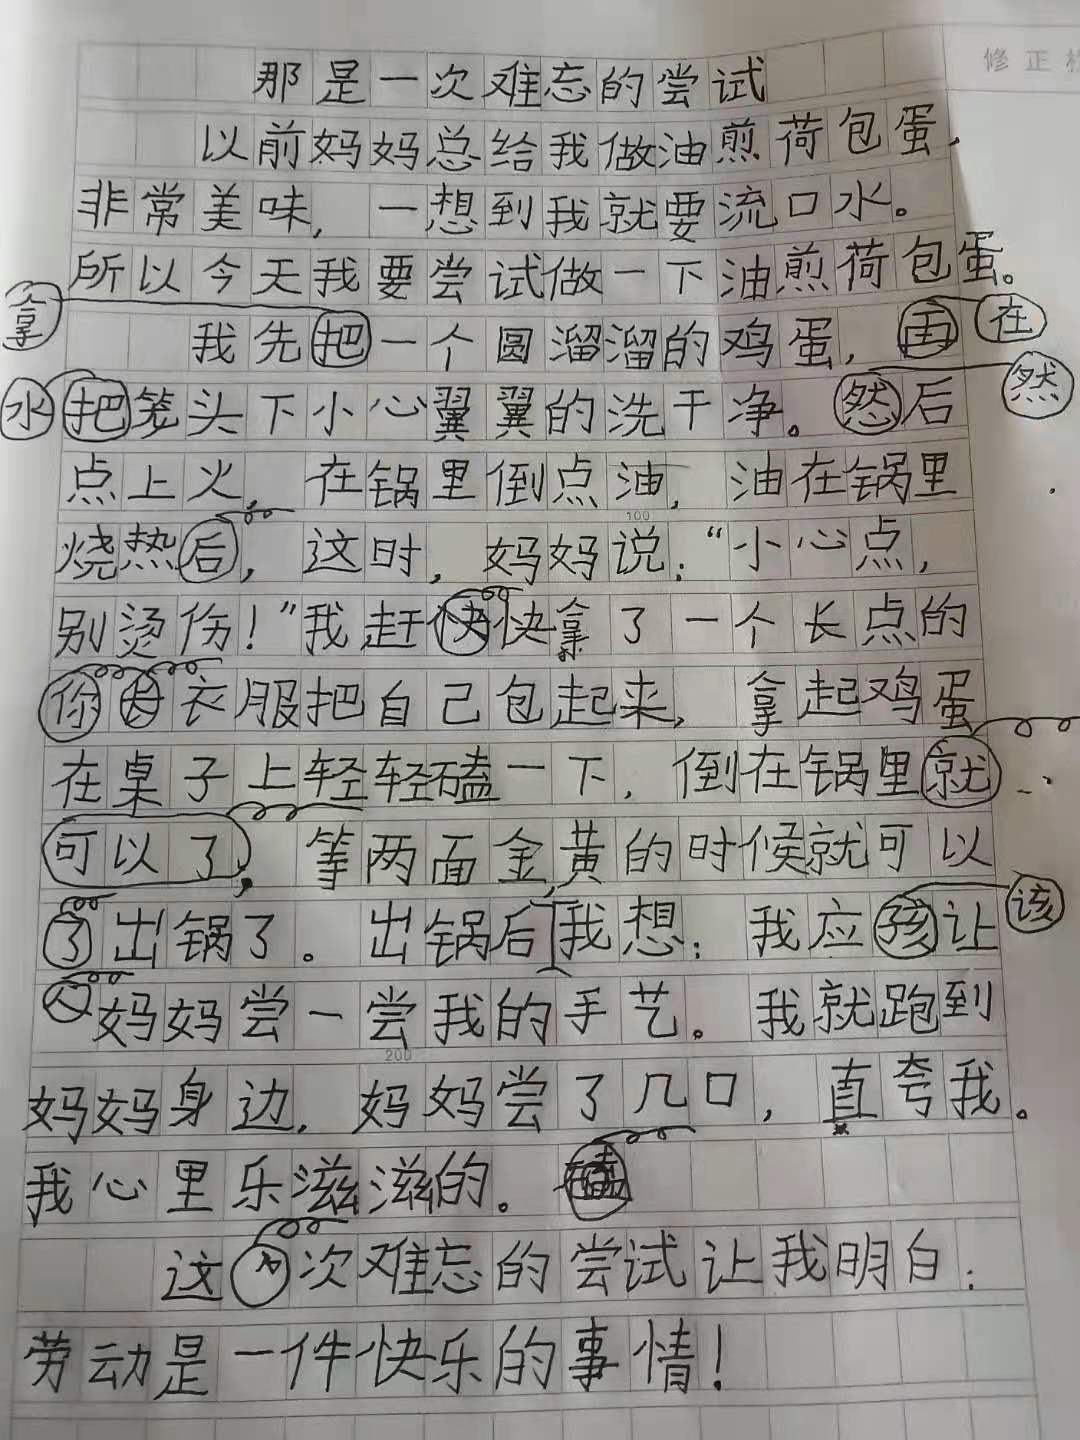 修正栏
那是一次难忘的尝试
以前妈妈总给我做油煎荷包蛋,
非常美味,一想到我就要流口水。
所以今天我要尝试做一下油煎荷包蛋。
拿
我先把一个圆溜溜的鸡蛋,再在
水把笼头下小心翼翼的洗干净。然后然
点上火,在锅里倒点油,油在锅里
100
烧热后,这时,妈妈说:“小心点,
别烫伤!”我赶快快拿了一个长点的
你衣服把自己包起来,拿起鸡蛋
在桌子上轻轻磕一下,倒在锅里就
可以了,等两面金黄的时候就可以
了出锅了。出锅后我想:我应孩让该
妈妈尝一尝我的手艺。我就跑到
200
妈妈身边,妈妈尝了几口,直夸我。
我心里乐滋滋的。
这次难忘的尝试让我明白:
劳动是一件快乐的事情!